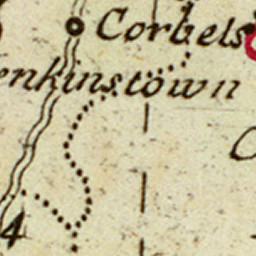 Corbels
enkinstown
4